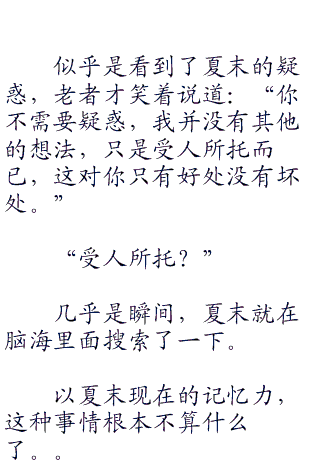 似乎是看到了夏末的疑
惑，老者才笑着说道：“你
不需要疑惑，我并没有其他
的想法，只是受人所托而
已，这对你只有好处没有坏
处。”
“受人所托？”
几乎是瞬间，夏末就在
脑海里面搜索了一下。
以夏末现在的记忆力，
这种事情根本不算什么
了。。